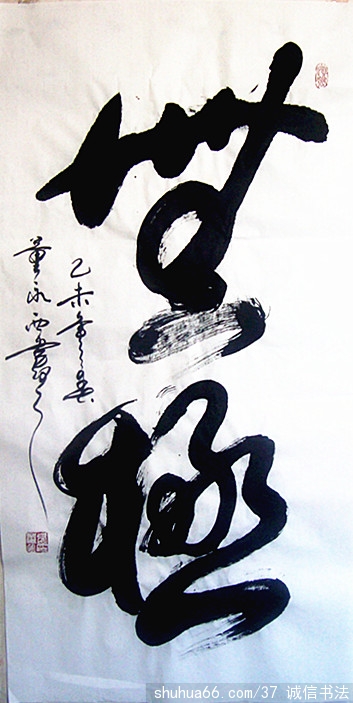 無極
乙未年春
董永西書
shuhua66.com/37 诚信书法